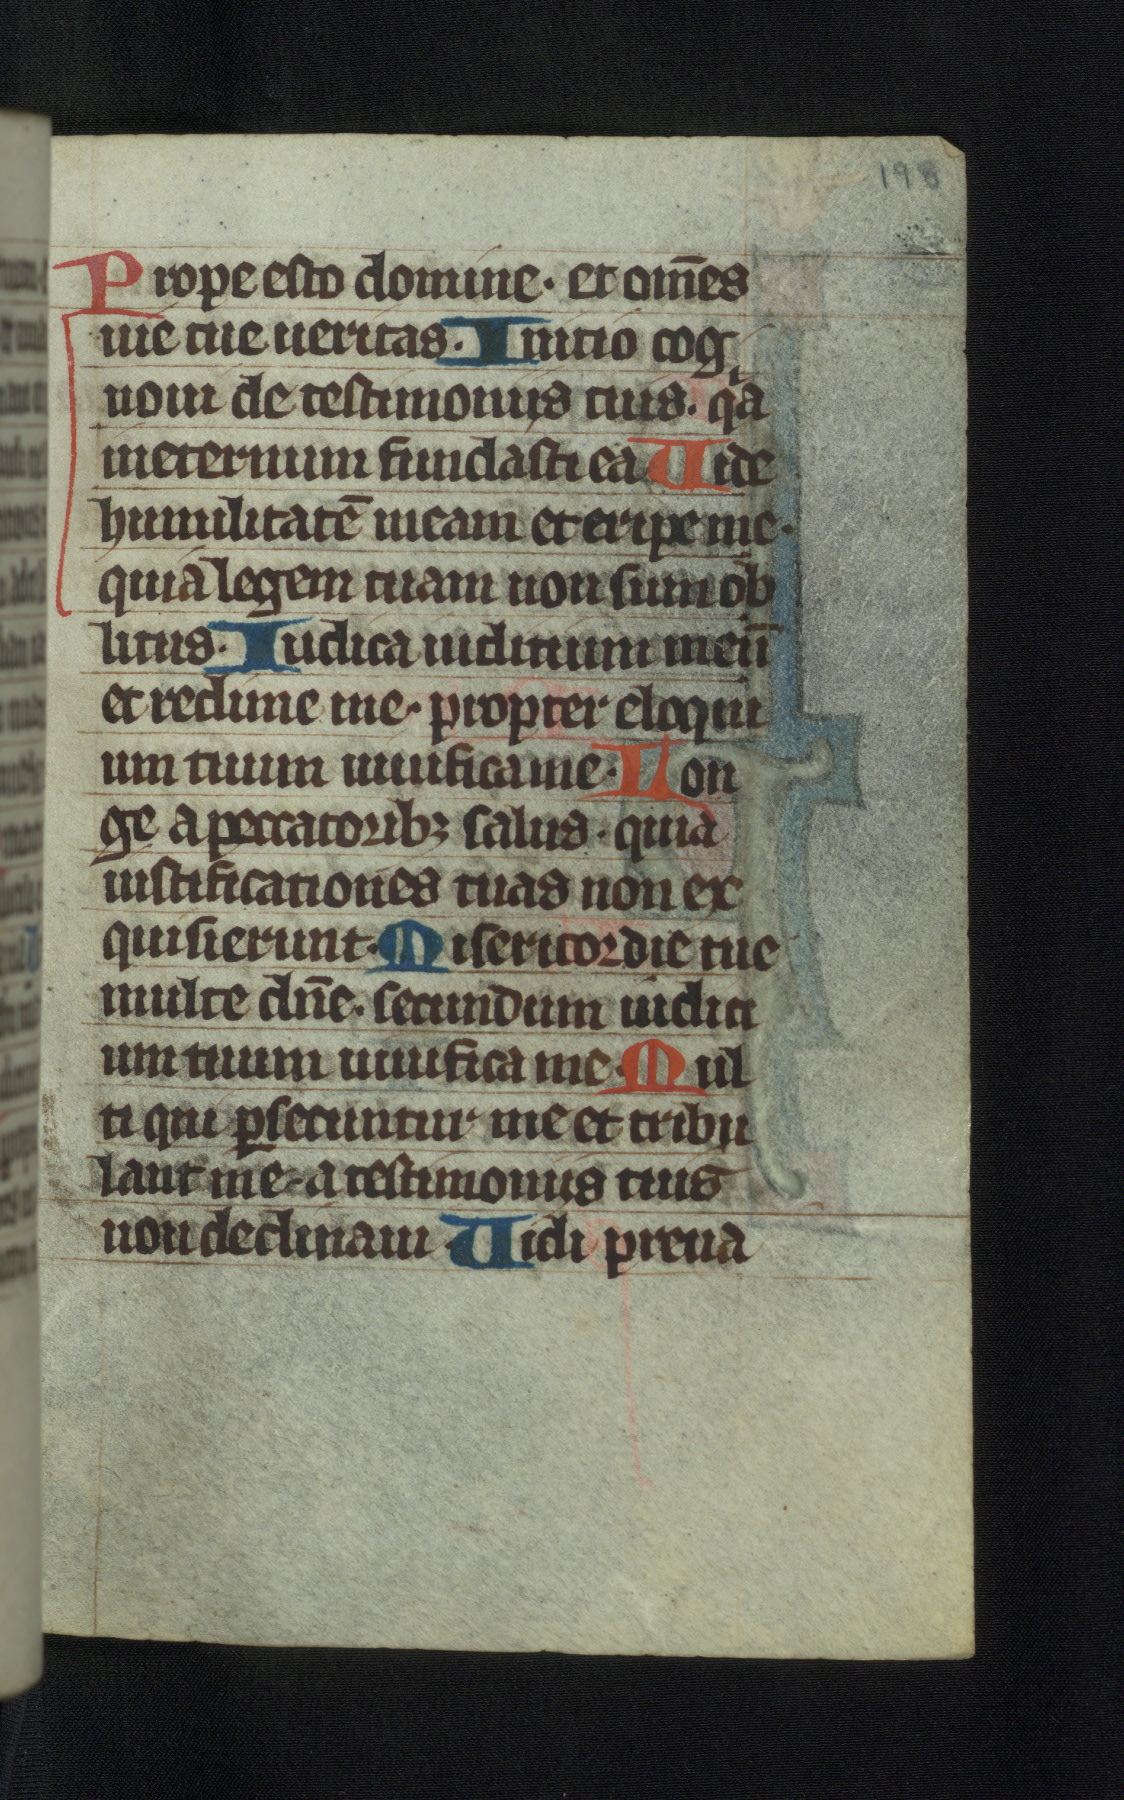 198
Prope esto domine· et om̄es
uie tue ueritas· Initio cog
noui de testimoniis tuis· qͥa
ineternum fundasti ea Uide
humilitatē meam et eripe me·
quia legem tuam non sum ob
litus· Iudica iudicium meū
et redime me· propter eloqui
um tuum uiuifica me· Lon
ge a peccatoribꝫ salus· quia
iustificationes tuas non ex
quisierunt· Misericordie tue
multe dn̄e· secundum iudici
um tuum uiuifica me· Mul
ti qui ꝑsecuntur me et tribu
lant me· a testimoniis tuis
non declinaui· Uidi preua